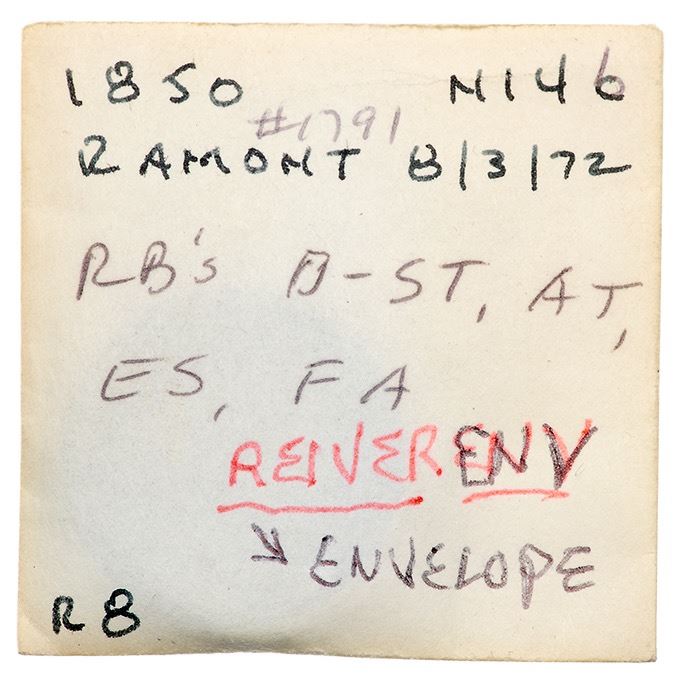 1850 N146
#1791
RAMONT 8/3/72
RB's B-ST, AT,
ES, FA
REIVER ENV
↘ ENVELOPE
R8